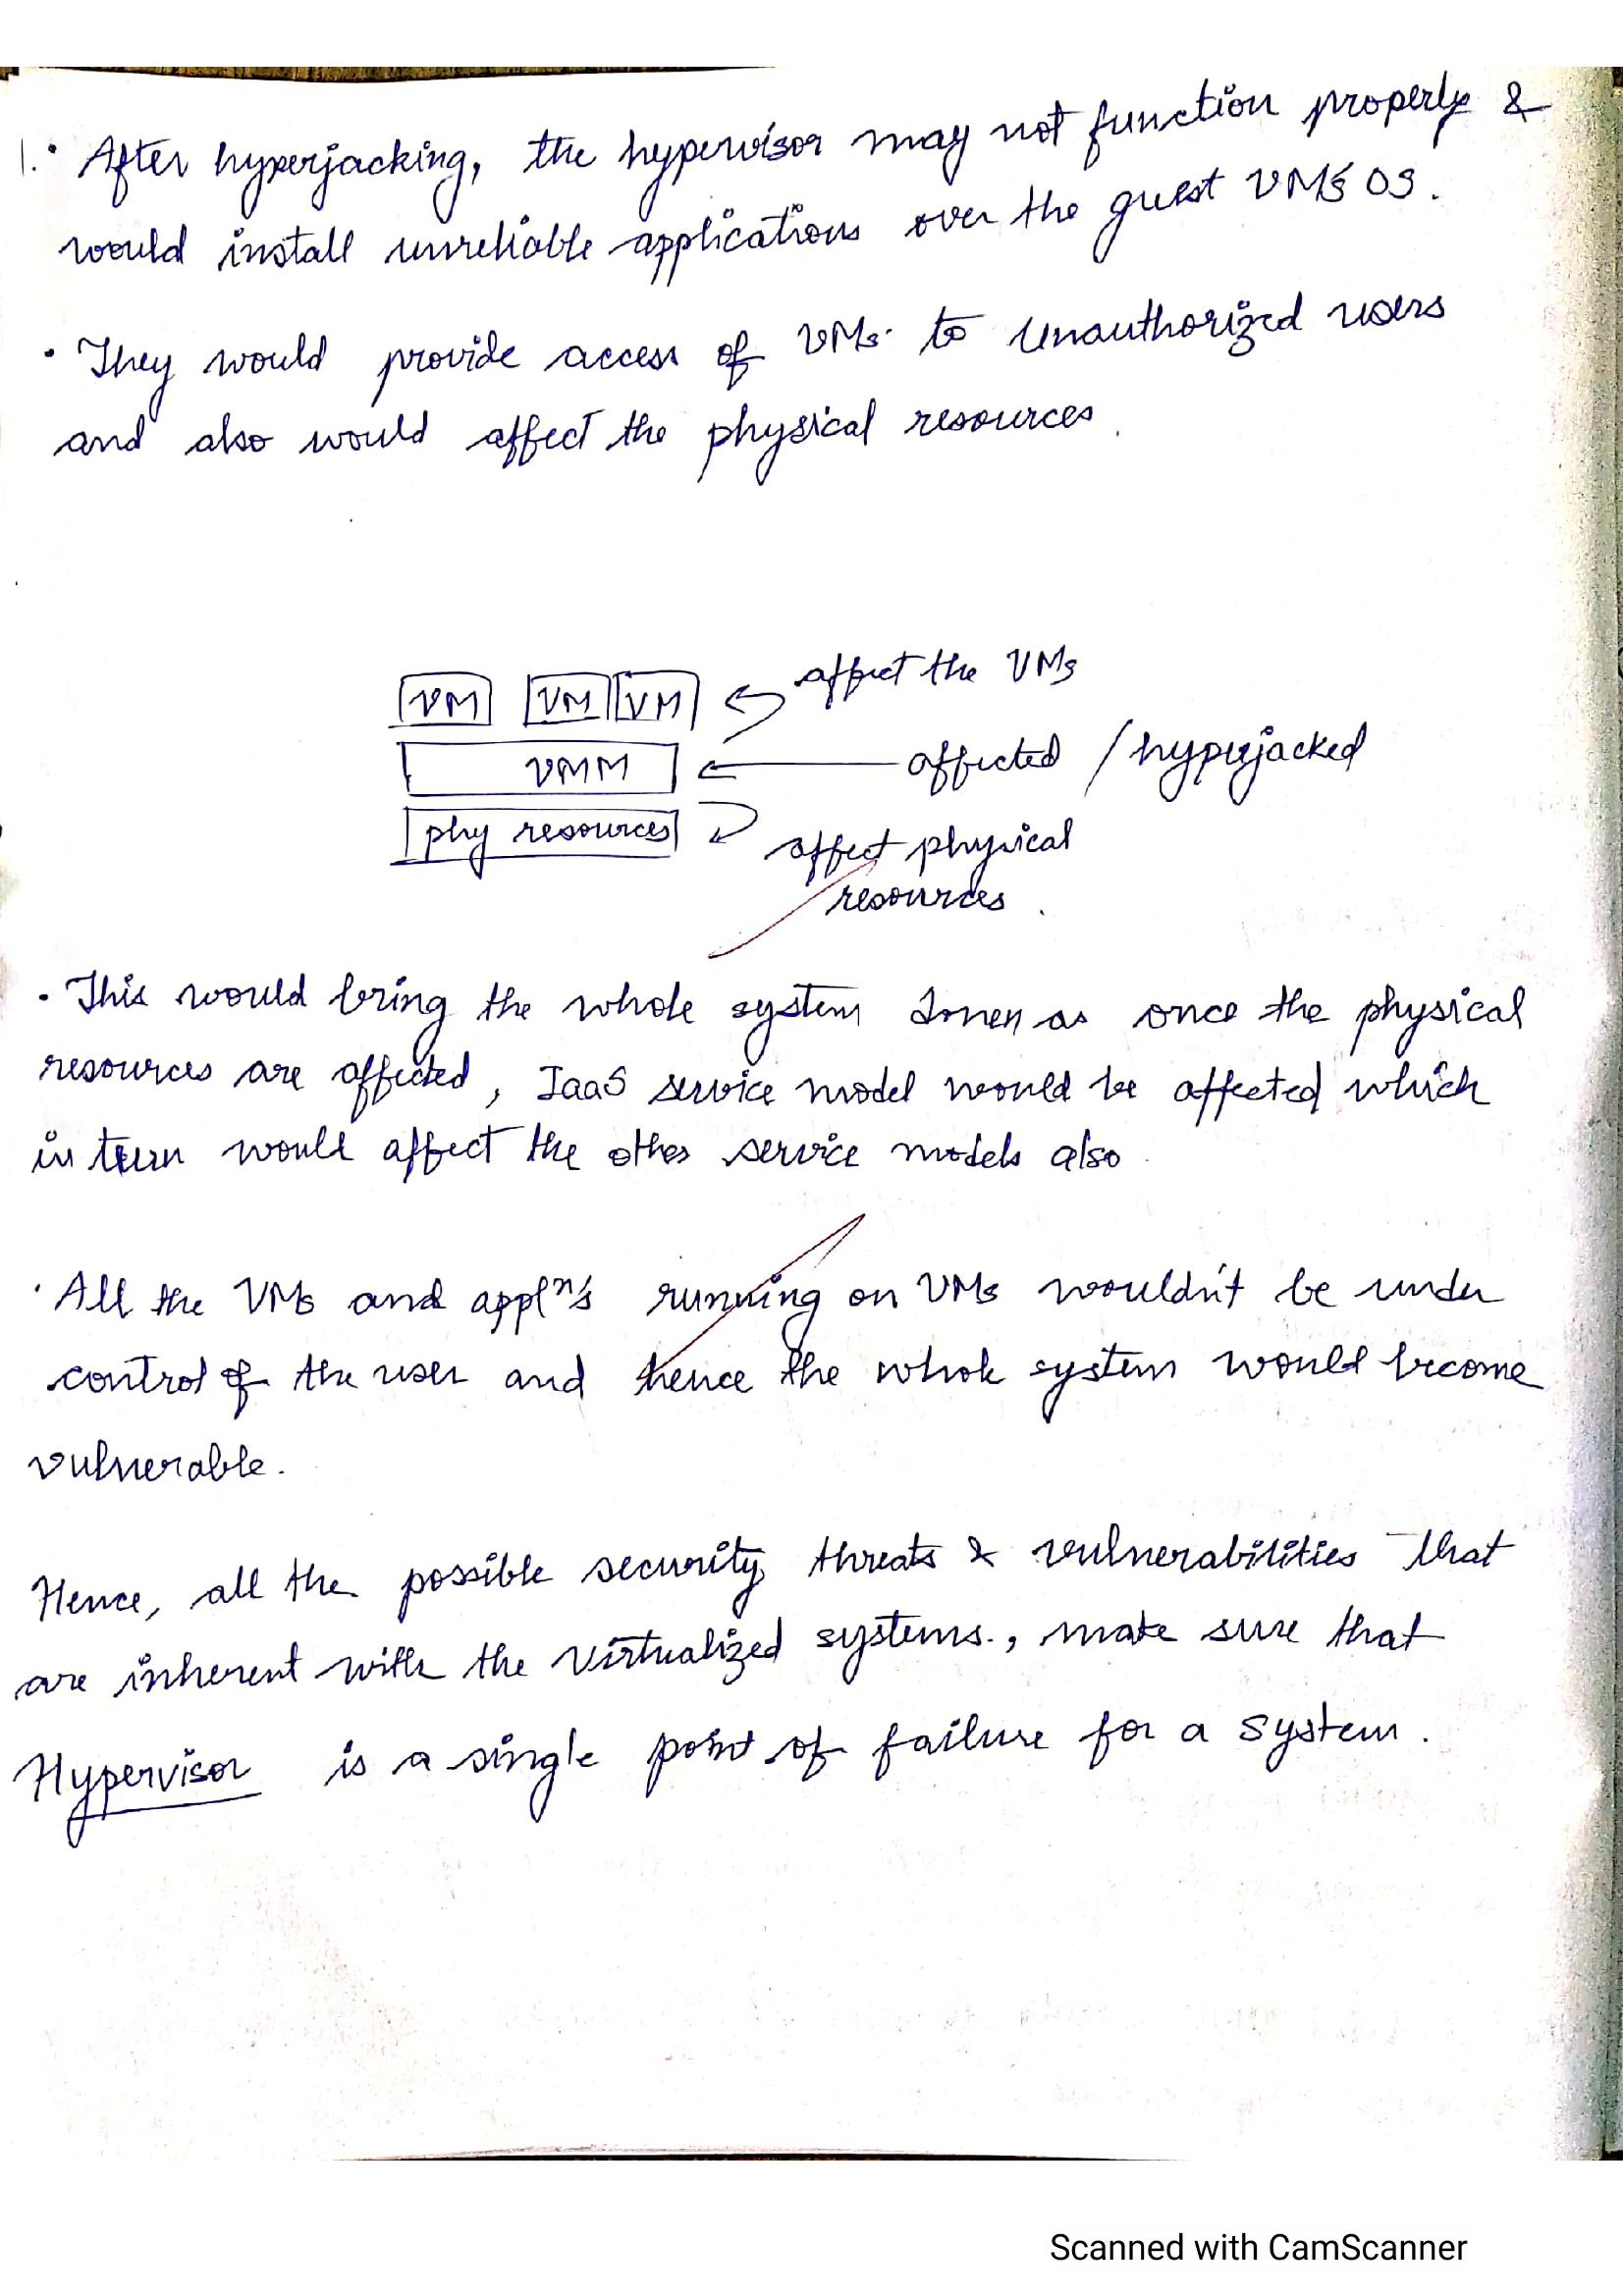 1. • After hyperjacking, the hypervisor may not function properly &
would install unreliable applications over the guest VM's OS.
• They would provide access of VMs to unauthorized users
and also would affect the physical resources.
VM VM VM affect the VMs
VMM affected / hyperjacked
phy resources affect physical
resources.
• This would bring the whole system down as once the physical
resources are affected, IaaS service model would be affected which
in turn would affect the other service models also.
• All the VMs and applⁿ's running on VMs wouldn't be under
control of the user and hence the whole system would become
vulnerable.
Hence, all the possible security threats & vulnerabilities that
are inherent with the virtualized systems., make sure that
Hypervisor is a single point of failure for a system.
Scanned with CamScanner